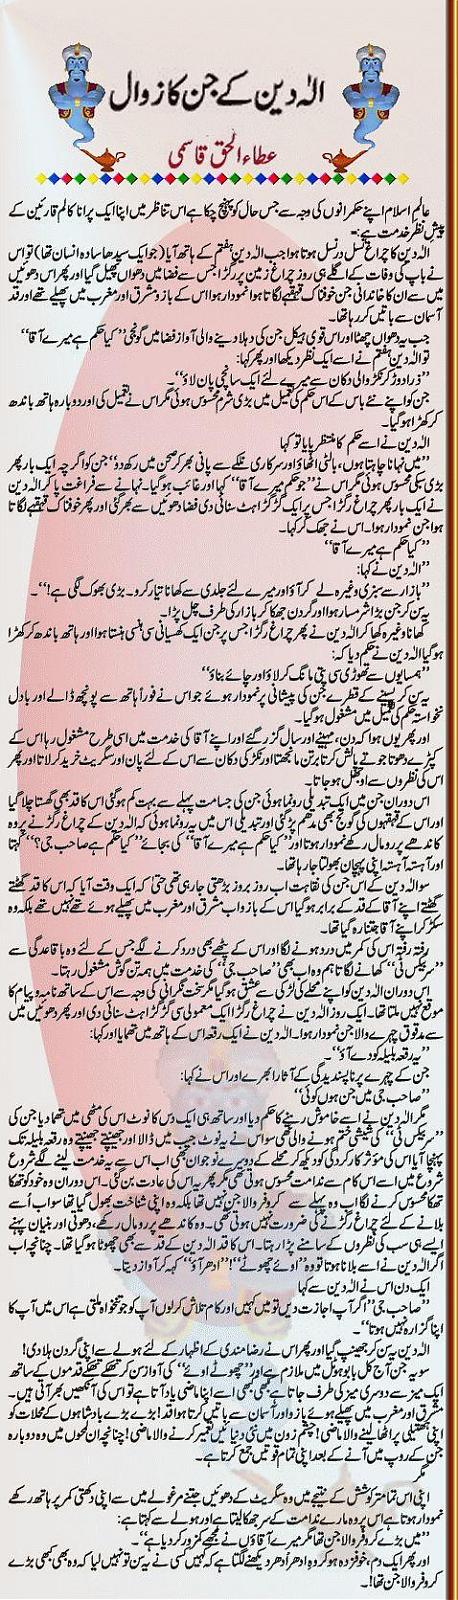 الٰہ دین کے جن کا زوال
عطاء الحق قاسمی
عالمِ اسلام اپنے حکمرانوں کی وجہ سے جس حال کو پہنچ چکا ہے اس تناظر میں اپنا ایک پرانا کالم قارئین کے
پیشِ نظر خدمت ہے:۔
الٰہ دین کا چراغ نسل در نسل ہوتا ہوا جب الٰہ دین ہفتم کے ہاتھ آیا (جو ایک سیدھا سادہ انسان تھا) تو اس
نے باپ کی وفات کے اگلے ہی روز چراغ زمین پر رگڑا جس سے فضا میں دھواں پھیل گیا اور پھر اس دھوئیں
میں سے ان کا خاندانی جن خوفناک قہقہے لگاتا ہوا نمودار ہوا اس کے بازو مشرق اور مغرب میں پھیلے تھے اور قد
آسمان سے باتیں کر رہا تھا۔
جب یہ دھواں چھٹا اور اس قوی ہیکل جن کی دہلا دینے والی آواز فضا میں گونجی ’’کیا حکم ہے میرے آقا‘‘
تو الٰہ دین ہفتم نے اسے ایک نظر دیکھا اور پھر کہا:
’’ذرا دوڑ کر نکڑ والی دکان سے میرے لئے ایک سانچی پان لاؤ‘‘۔
جن کو اپنے نئے باس کے اس حکم کی تعمیل میں بڑی شرم محسوس ہوئی مگر اس نے تعمیل کی اور دوبارہ ہاتھ باندھ
کر کھڑا ہو گیا۔
الٰہ دین نے اسے حکم کا منتظر پایا تو کہا
’’میں نہانا چاہتا ہوں، بالٹی اٹھاؤ اور سرکاری نلکے سے پانی بھر کر صحن میں رکھ دو‘‘ جن کو اگرچہ ایک بار پھر
بڑی سبکی محسوس ہوئی مگر اس نے ’’جو حکم میرے آقا‘‘ کہا اور غائب ہو گیا۔ نہانے سے فراغت پا کر الٰہ دین
نے ایک بار پھر چراغ رگڑا جس پر ایک گڑگڑاہٹ سنائی دی فضا دھوئیں سے بھر گئی اور پھر خوفناک قہقہے لگاتا
ہوا جن نمودار ہوا۔ اس نے جھک کر کہا۔
’’کیا حکم ہے میرے آقا‘‘
’’الٰہ دین نے کہا:
’’بازار سے سبزی وغیرہ لے کر آؤ اور میرے لئے جلدی سے کھانا تیار کرو۔ بڑی بھوک لگی ہے!‘‘۔
یہ سن کر جن بڑا شرمسار ہوا اور گردن جھکا کر بازار کی طرف چل پڑا۔
کھانا وغیرہ کھا کر الٰہ دین نے پھر چراغ رگڑا جس پر جن ایک کھسیانی سی ہنسی ہنستا ہوا اور ہاتھ باندھ کر کھڑا
ہو گیا الٰہ دین نے حکم دیا کہ:
’’ہمسایوں سے تھوڑی سی پتی مانگ کر لاؤ اور چائے بناؤ‘‘
یہ سن کر پسینے کے قطرے جن کی پیشانی پر نمودار ہوئے جو اس نے فوراً ہاتھ سے پونچھ ڈالے اور بادل
نخواستہ حکم کی تعمیل میں مشغول ہو گیا۔
اور پھر یوں ہوا کہ دن، مہینے اور سال گزر گئے اور اپنے آقا کی خدمت میں اسی طرح مشغول رہا اس کے
کپڑے دھوتا جوتے پالش کرتا برتن مانجھتا اور نکڑ کی دکان سے اس کے لئے پان اور سگریٹ خرید کر لاتا اور پھر
اس کی نظروں سے اوجھل ہو جاتا۔
اس دوران جن میں ایک تبدیلی رونما ہوئی جن کی جسامت پہلے سے بہت کم ہو گئی اس کا قد بھی گھستا چلا گیا
اور اس کے قہقہوں کی گونج بھی مدھم پڑ گئی اور تبدیلی اس میں یہ رونما ہوئی کہ الٰہ دین کے چراغ رگڑنے پر وہ
کاندھے پر رومال رکھے نمودار ہوتا اور ’’کیا حکم ہے میرے آقا‘‘ کی بجائے ’’کیا حکم ہے صاحب جی؟‘‘ کہتا
اور آہستہ آہستہ اپنی پہچان بھولتا جا رہا تھا۔
سو الٰہ دین کے اس جن کی نقاہت اب روز بروز بڑھتی جا رہی تھی حتیٰ کہ ایک وقت آیا کہ اس کا قد گھٹتے
گھٹتے اپنے آقا کے قد کے برابر ہو گیا اس کے بازو اب مشرق اور مغرب میں پھیلے ہوئے تھے نہیں تھے بلکہ وہ
سکڑ کر اپنے آقا جتنا رہ گیا تھا۔
رفتہ رفتہ اس کی کمر میں درد ہونے لگا اور اس کے پٹھے بھی درد کرنے لگے جس کے لئے وہ باقاعدگی سے
’’سربیکس ٹی‘‘ کھانے لگا تاہم وہ اب بھی ’’صاحب جی‘‘ کی خدمت میں ہمہ تن گوش مشغول رہتا۔
اس دوران الٰہ دین کو اپنے محلے کی لڑکی سے عشق ہو گیا مگر سخت نگرانی کی وجہ سے اس کے ساتھ نامہ و پیام کا
موقع نہیں ملتا تھا۔ ایک روز الٰہ دین نے چراغ رگڑا ایک معمولی سی گڑگڑاہٹ سنائی دی اور پھر دھوئیں میں
سے مدقوق چہرے والا جن نمودار ہوا۔ الٰہ دین نے ایک رقعہ اس کے ہاتھ میں تھمایا اور کہا:
’’یہ رقعہ بلبلہ کو دے آؤ‘‘۔
جن کے چہرے پر ناپسندیدگی کے آثار ابھرے اور اس نے کہا:
’’صاحب جی میں جن ہوں کوئی‘‘
مگر الٰہ دین نے اسے خاموش رہنے کا حکم دیا اور ساتھ ہی ایک دس کا نوٹ اس کی مٹھی میں تھما دیا جن کی
’’سربیکس ٹی‘‘ کی شیشی ختم ہونے والی تھی سو اس نے یہ نوٹ جیب میں ڈالا اور جھینپتے جھینپتے وہ رقعہ بلبلہ تک
پہنچا آیا اس کی مؤثر کارکردگی کو دیکھ کر محلے کے دوسرے نوجوان بھی اب اس سے یہ خدمت لینے لگے شروع
شروع میں اسے اس کام سے ندامت محسوس ہوتی تھی مگر پھر یہ اس کی عادت بن گئی۔ اس دوران وہ خود کو تھکا
تھکا محسوس کرنے لگا اب وہ پہلے سے کروفر والا جن نہیں تھا بلکہ وہ اپنی شناخت بھول گیا تھا سو اب اُسے
بلانے کے لئے چراغ رگڑنے کی ضرورت نہیں ہوتی تھی۔ وہ کاندھے پر رومال رکھے، دھوتی اور بنیان پہنے
ایسے ہی سب کی نظروں کے سامنے پڑا رہتا۔ اس کا قد الٰہ دین کے قد سے بھی چھوٹا ہو گیا تھا۔ چنانچہ اب
اگر الٰہ دین نے اسے بلانا ہوتا تو وہ ’’اوئے چھوٹے‘‘! ’’ادھر آؤ‘‘ کہہ کر آواز دیتا۔
ایک دن اس نے الٰہ دین سے کہا
’’صاحب جی‘‘ اگر آپ اجازت دیں تو میں کہیں اور کام تلاش کر لوں آپ کو جو تنخواہ ملتی ہے اس میں آپ کا
اپنا گزارہ نہیں ہوتا‘‘۔
الٰہ دین یہ سن کر جھینپ گیا اور پھر اس نے رضا مندی کے اظہار کے لئے ہولے سے اپنی گردن ہلا دی!
سو یہ جن آج کل بابو ہوٹل میں ملازم ہے اور ’’چھوٹے اوئے‘‘ کی آواز سن کر تھکے تھکے قدموں کے ساتھ
ایک میز سے دوسری میز کی طرف جاتا ہے کبھی کبھی اسے اپنا ماضی یاد آتا ہے تو اس کی آنکھیں بھر آتی ہیں۔
مشرق اور مغرب میں پھیلے ہوئے بازو اور آسمان سے باتیں کرتا ہوا قد! بڑے بڑے بادشاہوں کے محلات کو
اپنی ہتھیلی پر اٹھا لینے والا ماضی! چشم زدن میں نئی دنیائیں تعمیر کرنے والا ماضی! چنانچہ ان لمحوں میں وہ دوبارہ
جن کے روپ میں آنے کے بعد اپنی تمام قوتیں جمع کرتا ہے۔
مگر
اپنی اس تمام تر کوشش کے نتیجے میں وہ سگریٹ کے دھوئیں جتنے مرغولے میں سے اپنی دکھتی کمر پر ہاتھ رکھے
نمودار ہوتا ہے اس پر وہ مارے ندامت کے سر جھکا لیتا ہے اور ہولے سے کہتا ہے:
’’میں بڑے کروفر والا جن تھا مگر میرے آقاؤں نے مجھے کمزور کر دیا ہے‘‘۔
اور پھر ایک دم، خوفزدہ ہو کر وہ ادھر اُدھر دیکھنے لگتا ہے کہ کہیں کسی نے یہ سن تو نہیں لیا کہ وہ بھی کبھی بڑے
کروفر والا جن تھا!۔